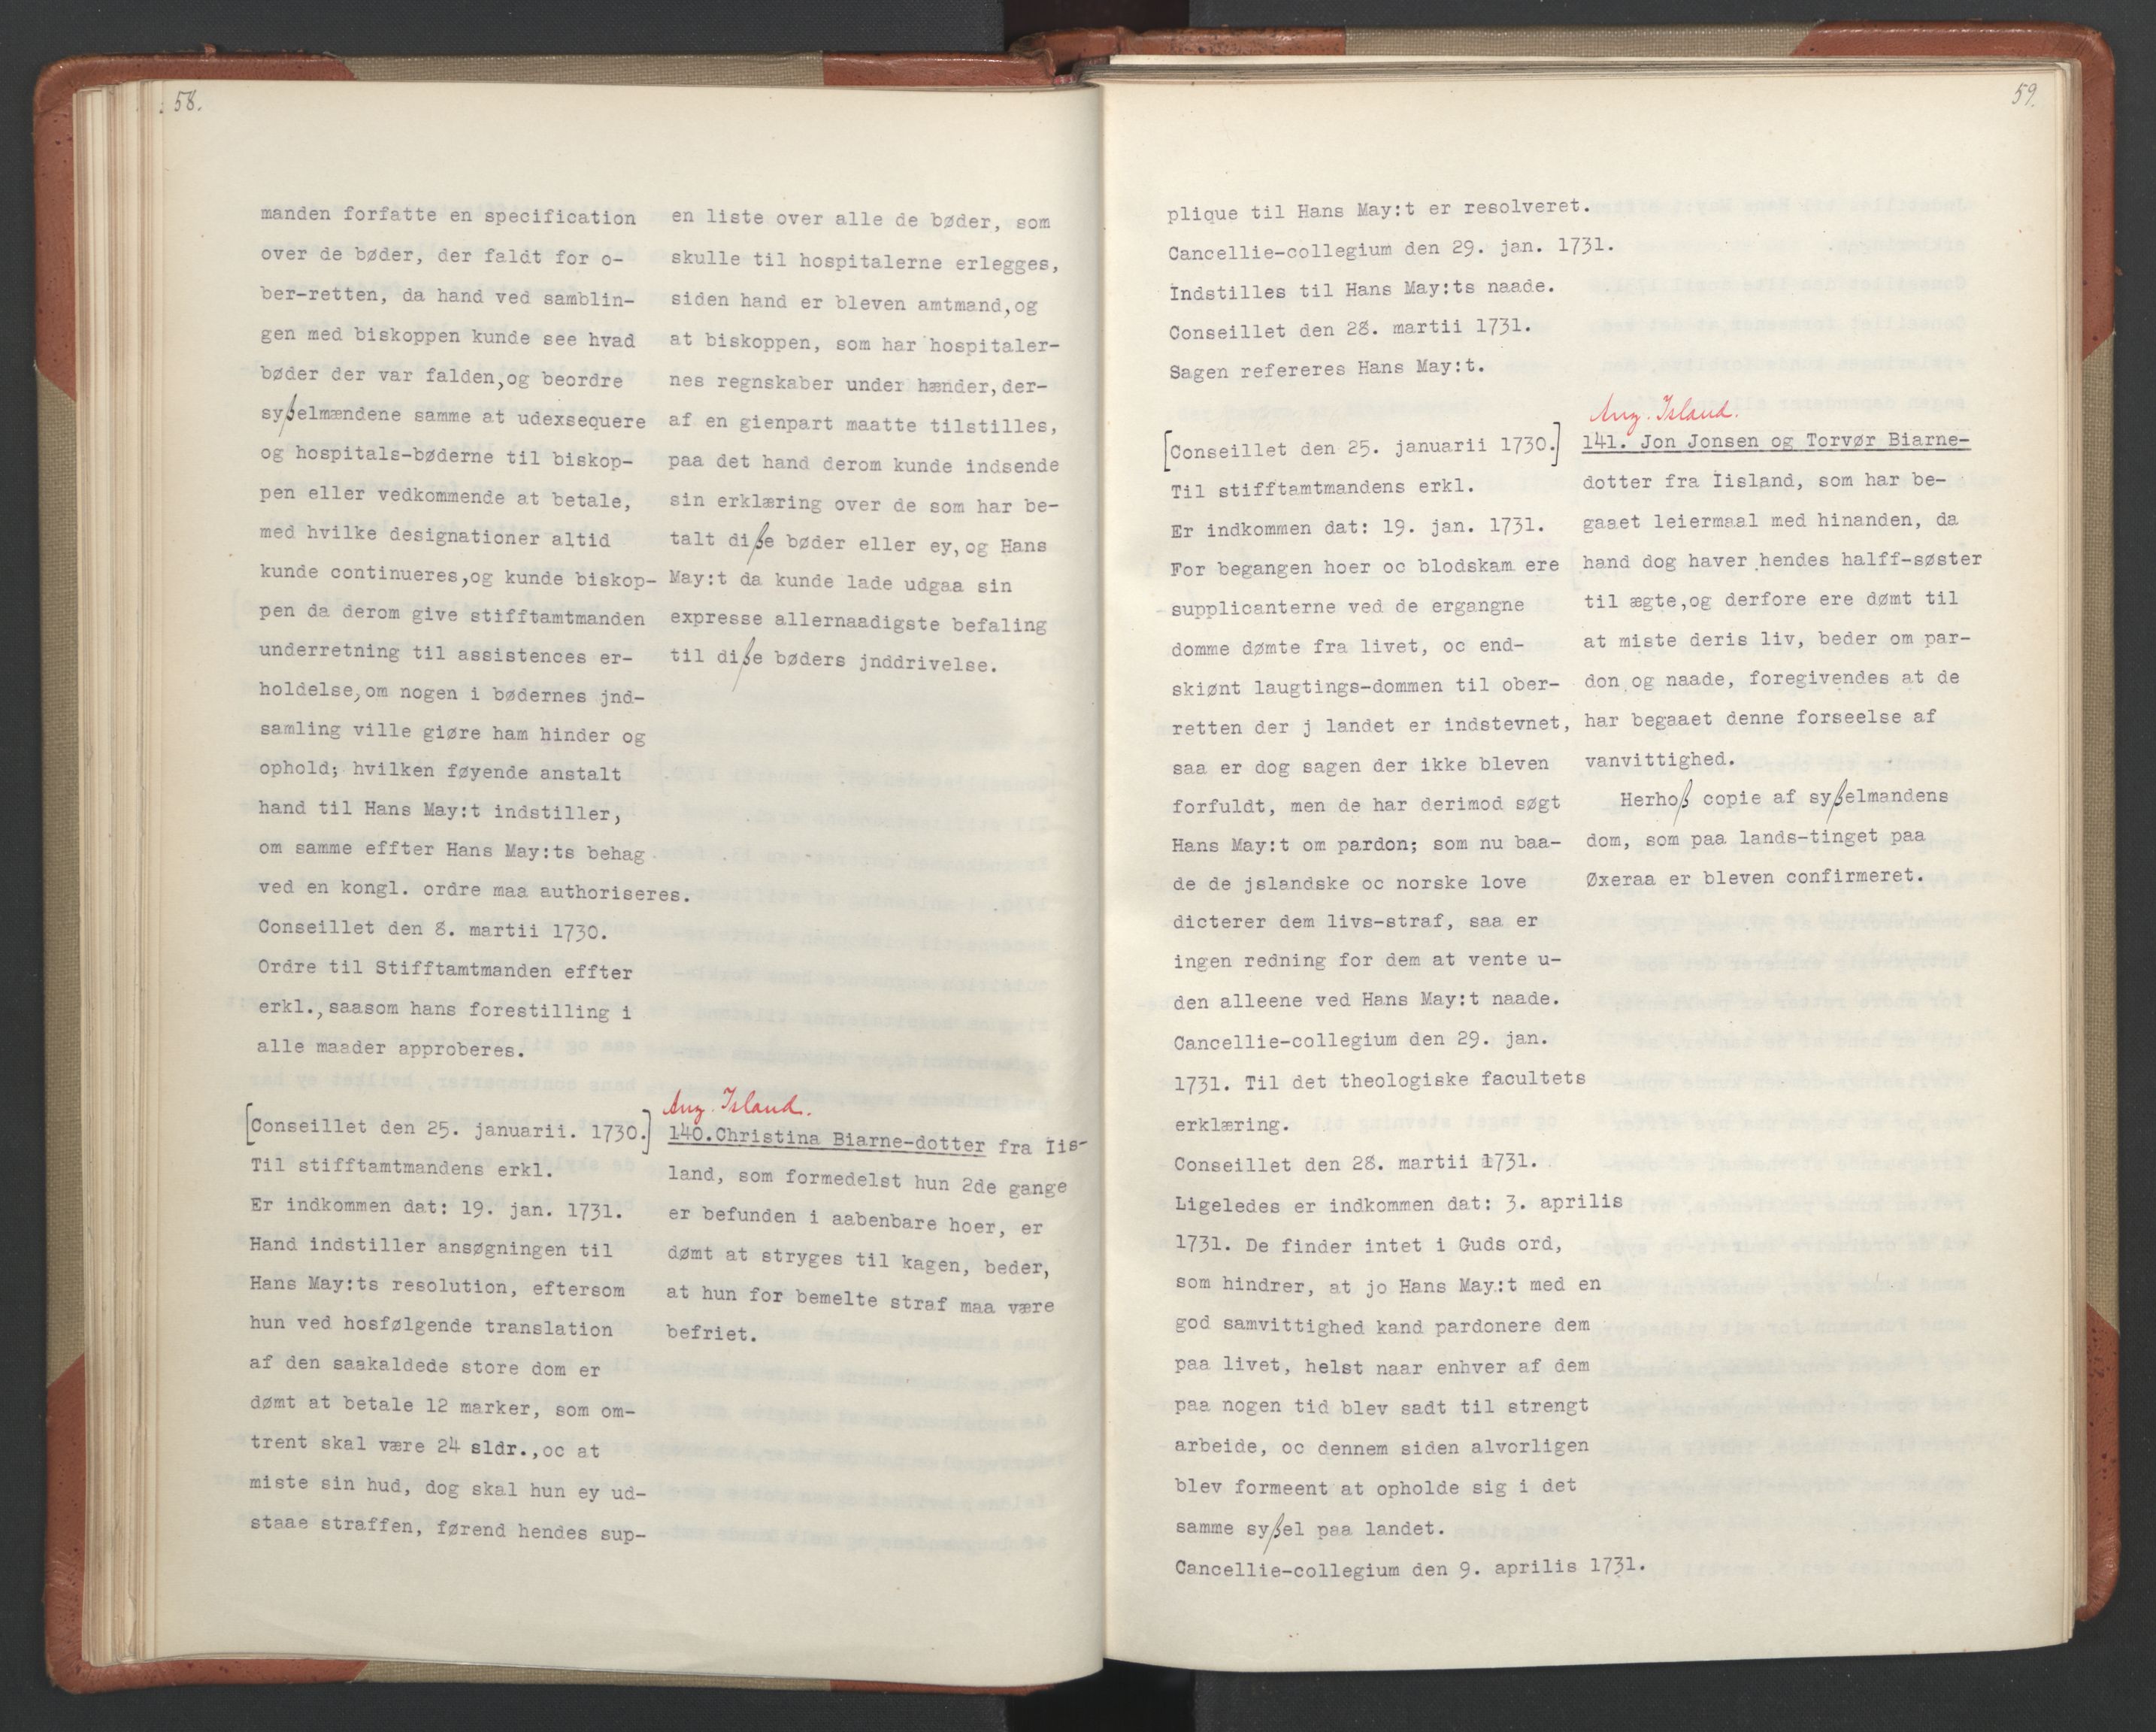 58.
manden forfatte en specification
over de bøder, der faldt for o-
ber-retten, da hand ved samblin-
gen med biskoppen kunde see hvad
bøder der var falden,og beordre
syßelmændene samme at udexsequere
og hospitals-bøderne til biskop-
pen eller vedkommende at betale,
med hvilke designationer altid
kunde continueres,og kunde biskop-
pen da derom give stifftamtmanden
underretning til assistences er-
holdelse,om nogen i bødernes jnd-
samling ville giøre ham hinder og
ophold; hvilken føyende anstalt
hand til Hans May:t indstiller,
om samme effter Hans May:ts behag
ved en kongl. ordre maa authoriseres.
Conseillet den 8. martii 1730.
Ordre til Stifftamtmanden effter
erkl.,saasom hans forestilling i
alle maader approberes.
en liste over alle de bøder, som
skulle til hospitalerne erlegges,
siden hand er bleven amtmand,og
at biskoppen, som har hospitaler-
nes regnskaber under hænder,der-
af en gienpart maatte tilstilles,
paa det hand derom kunde indsende
sin erklæring over de som har be-
talt diße bøder eller ey,og Hans
May:t da kunde lade udgaa sin
expresse allernaadigste befaling
til diße bøders jnddrivelse.
[Conseillet den 25. januarii. 1730.]
Til stifftamtmandens erkl.
Er indkommen dat: 19. jan. 1731.
Hand indstiller ansøgningen til
Hans May:ts resolution, eftersom
hun ved hosfølgende translation
af den saakaldede store dom er
dømt at betale 12 marker, som om-
trent skal være 24 sldr.,oc at
miste sin hud, dog skal hun ey ud-
staae straffen, førend hendes sup-
Ang. Island.
140.Christina Biarne-dotter fra Iis-
land, som formedelst hun 2de gange
er befunden i aabenbare hoer, er
dømt at stryges til kagen, beder,
at hun for bemelte straf maa være
befriet.
59.
plique til Hans May:t er resolveret.
Cancellie-collegium den 29. jan. 1731.
Indstilles til Hans May:ts naade.
Conseillet den 28. martii 1731.
Sagen refereres Hans May:t.
[Conseillet den 25. januarii 1730.]
Til stifftamtmandens erkl.
Er indkommen dat: 19. jan. 1731.
For begangen hoer oc blodskam ere
supplicanterne ved de ergangne
domme dømte fra livet, oc end-
skiønt laugtings-dommen til ober-
retten der j landet er indstevnet,
saa er dog sagen der ikke bleven
forfuldt, men de har derimod søgt
Hans May:t om pardon; som nu baa-
de de jslandske oc norske love
dicterer dem livs-straf, saa er
ingen redning for dem at vente u-
den alleene ved Hans May:t naade.
Cancellie-collegium den 29. jan.
1731. Til det theologiske facultets
erklæring.
Conseillet den 28. martii 1731.
Ligeledes er indkommen dat: 3. aprilis
1731. De finder intet i Guds ord,
som hindrer, at jo Hans May:t med en
god samvittighed kand pardonere dem
paa livet, helst naar enhver af dem
paa nogen tid blev sadt til strengt
arbeide, oc dennem siden alvorligen
blev formeent at opholde sig i det
samme syßel paa landet.
Cancellie-collegium den 9. aprilis 1731.
Ang. Island.
141. Jon Jonsen og Torvør Biarne-
dotter fra Iisland, som har be-
gaaet leiermaal med hinanden, da
hand dog haver hendes halff-søster
til ægte,og derfore ere dømt til
at miste deris liv, beder om par-
don og naade, foregivendes at de
har begaaet denne forseelse af
vanvittighed.
Herhoß copie af syßelmandens
dom, som paa lands-tinget paa
Øxeraa er bleven confirmeret.